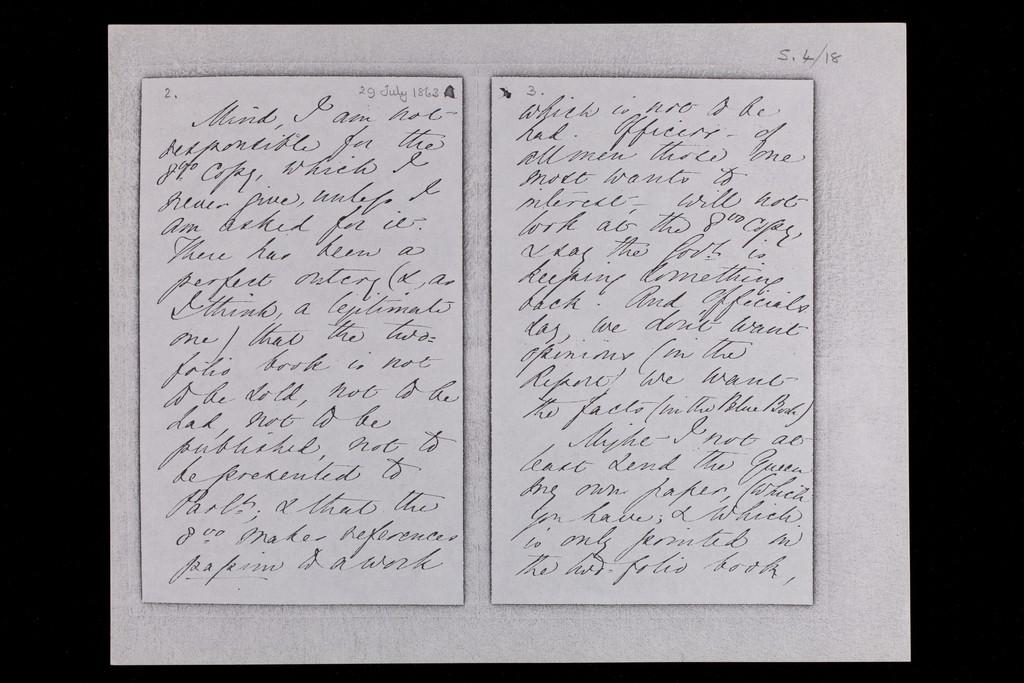 S. 4/18
2.
29 July 1863
Mind, I am not
responsible for the
8vo copy, which I
never give, unless I
am asked for it.
There has been a
perfect outcry (&, as
I think, a legitimate
one) that the two-
folio book is not
to be sold, not to be
had, not to be
published, not to
be presented to
Parlt; & that the
8vo makes references
passim to a work
3.
which is not to be
had. Officers - of
all men those one
most wants to
interest, - will not
look at the 8vo copy,
& say the Govt. is
keeping something
back. And Officials
say, we don't want
opinions (in the
Report) we want
the facts (in the Blue Book)
Might I not at
least send the Queen
my own paper, (which
you have; & which
is only printed in
the two-folio book,